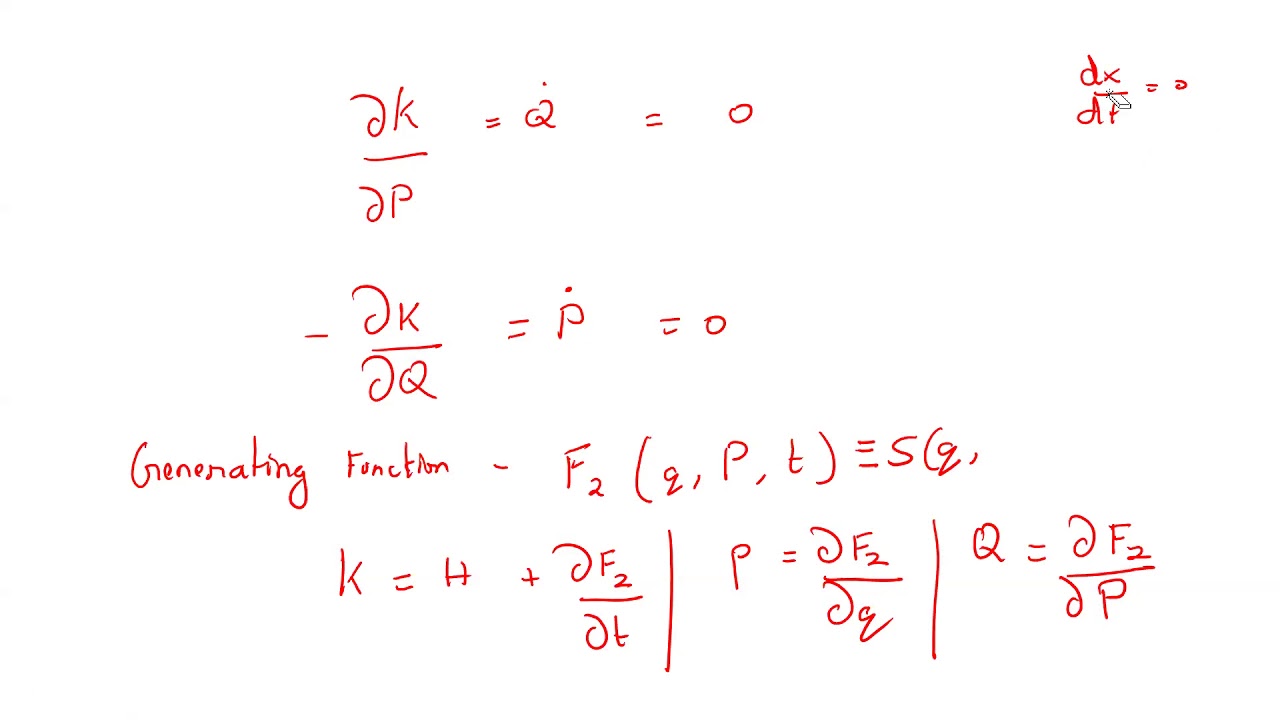 ∂K/∂P = Q̇ = 0
dx/dt = 0
- ∂K/∂Q = Ṗ = 0
Generating Function - F₂ (q, P, t) ≡ S(q,
K = H + ∂F₂/∂t | p = ∂F₂/∂q | Q = ∂F₂/∂P